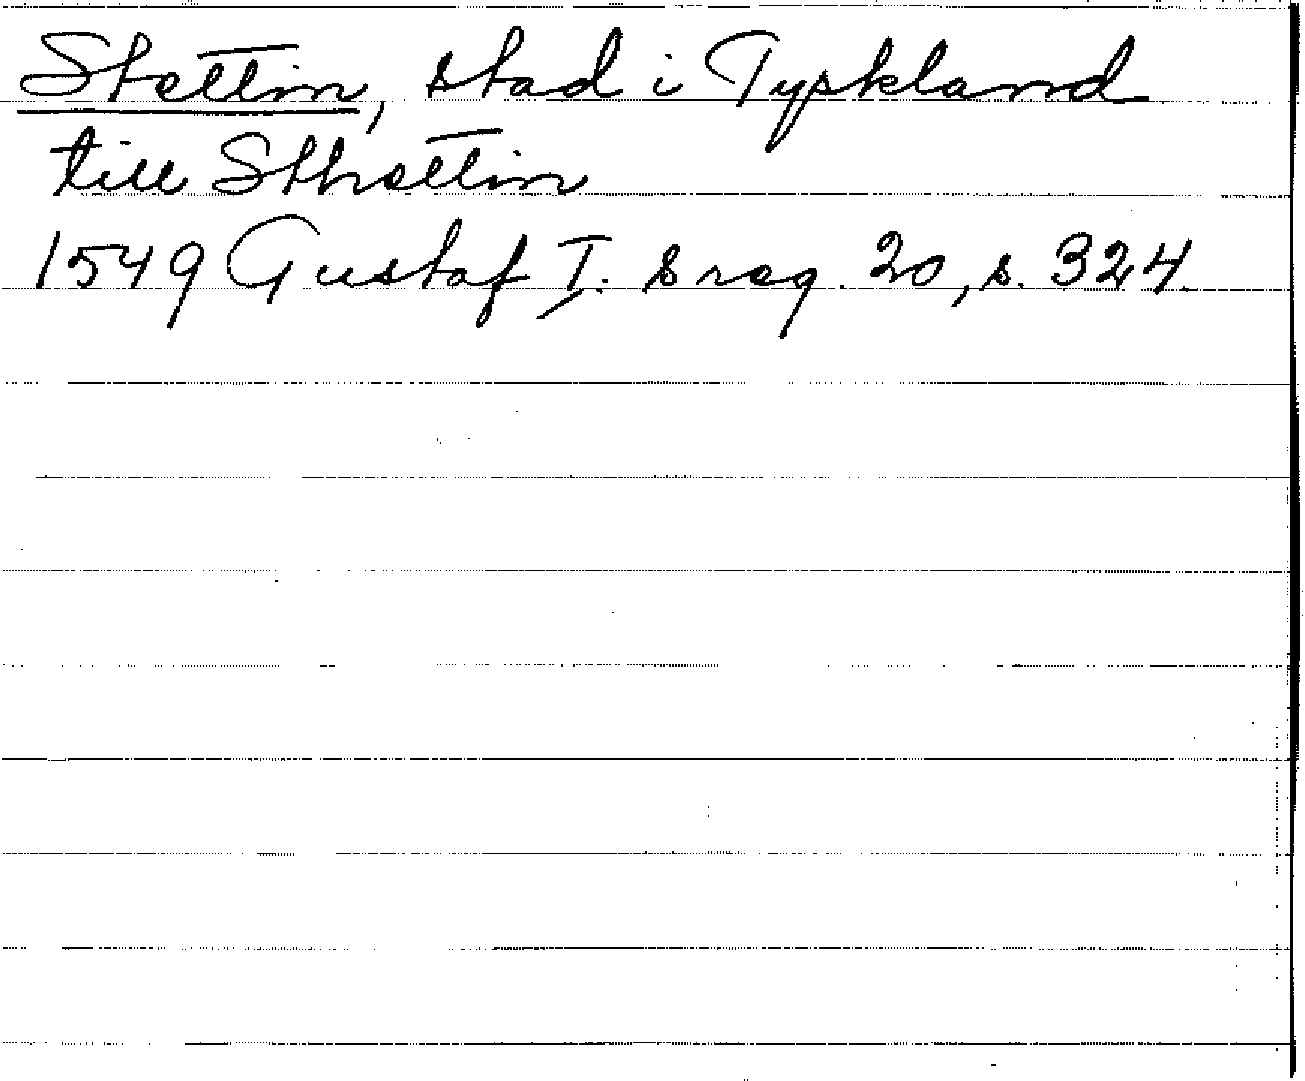 Stettin, stad i Tyskland
till Sthettin
1549 Gustaf I: s reg. 20, s. 324.